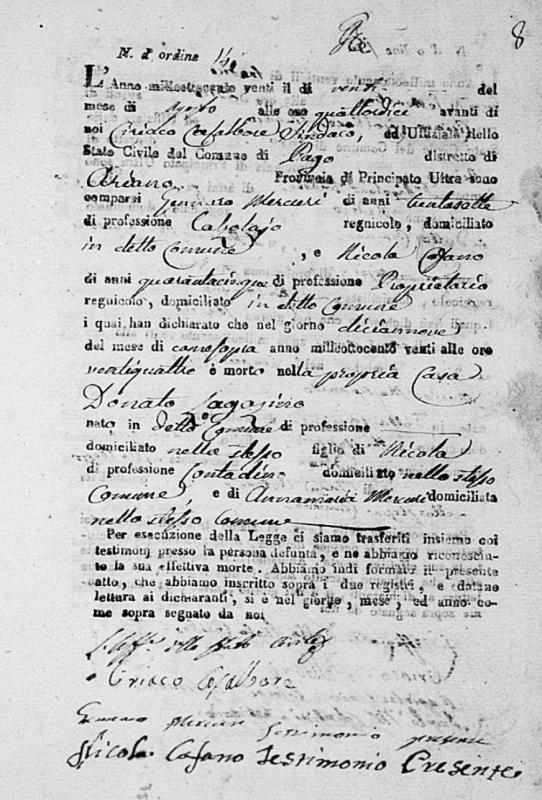 8
N. d'ordine
L'Anno milleottocento venti il di venti del
mese di Agosto alle ore quattordici avanti di
noi Ciriaco Casalbore Sindaco, ed Uffiziale dello
Stato Civile del Comune di Pago distretto di
Ariano Provincia di Principato Ultra sono
comparsi Gennaro Mercuri di anni trentasette
di professione regnicolo, domiciliato
in detto Comune, e Nicola Cafano
di anni quarantacinque di professione Proprietario
regnicolo, domiciliato in detto Comune
i quai han dichiarato che nel giorno diecianove
del mese di anno milleottocento venti alle ore
ventiquattro è morto nella propria Casa
Donato
nato in detto Comune di professione
domiciliato nello stesso figlio di Nicola
di professione Contadino domiciliato nello stesso
Comune, e di Annamaria Mercuri domiciliata
nello stesso Comune
Per esecuzione della Legge ci siamo trasferiti insieme coi
testimonj presso la persona defunta, e ne abbiamo riconosciu-
to la sua effettiva morte. Abbiamo indi formato il presente
atto, che abbiamo inscritto sopra i due registri, e datane
lettura ai dichiaranti, si è nel giorno, mese, ed anno co-
me sopra segnato da noi
L'Uff. dello Stato Civile
Ciriaco Casalbore
Gennaro Mercuri Testimonio presente
Nicola Cafano Testimonio Presente